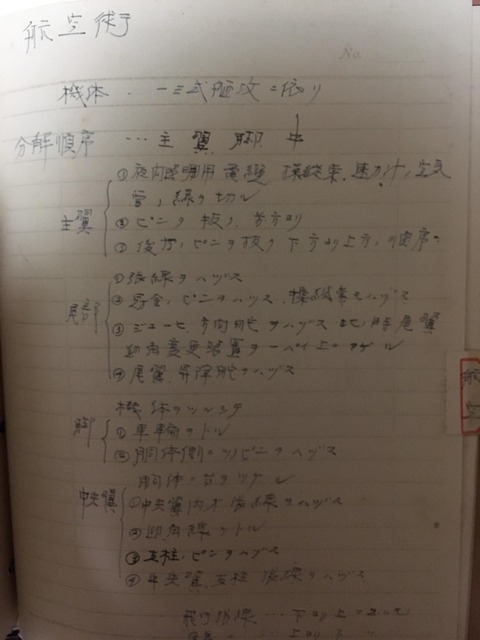 航空術
No.
機体 ‥ 一三式艦攻ニ依リ
分解順序 … 主翼 脚 中
主翼
① 夜間照明用電纜 操縦索、速力計、空気
管ノ線ヲ切ル
② ピンヲ抜ク 前方ヨリ
③ 後方ノピンヲ抜ク 下方ヨリ上方ノ順序
尾部
① 張線ヲハヅス
② ピンヲハヅス、操縦索モハヅス
③ 方向舵ヲハヅス 此ノ時尾翼
迎角変更装置ヲ一パイ上ニアゲル
④ 尾翼、昇降舵ヲハヅス
脚
機体ヲツルシ
① 車輪ヲトル
② 胴体側ノピンヲハヅス
胴体ニ台ヲツケル
中央翼
① 中央翼内 張線ヲハヅス
② 迎角線ヲトル
③ 支柱ノピンヲハヅス
④ 中央翼、支柱 張線ヲハヅス
飛行張線 … 下ヨリ上ニ
… 上ヨリ下
航空